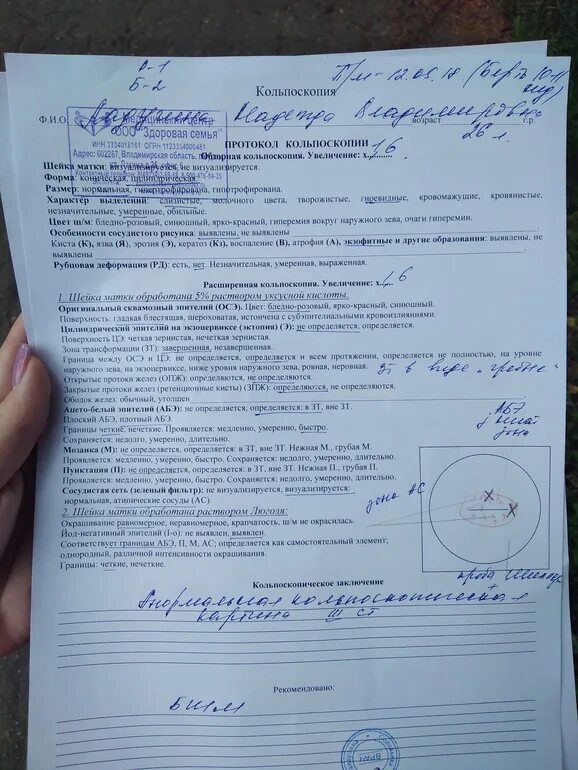 Р-1
Б-2
П/м - 12.05.18
Кольпоскопия
Ф.И.О. Надежда Владимировна возраст 26 л. г.р.
Медицинский центр
ООО "Здоровая семья"
ИНН 3334018161 ОГРН 1123334000481
Адрес: 602267, Владимирская область,
ПРОТОКОЛ КОЛЬПОСКОПИИ
Обзорная кольпоскопия. Увеличение: х 16
Шейка матки: визуализируется, не визуализируется.
Форма: коническая, цилиндрическая.
Размер: нормальная, гипертрофирована, гипотрофирована.
Характер выделений: слизистые, молочного цвета, творожистые, гноевидные, кровомажущие, кровянистые,
незначительные, умеренные, обильные.
Цвет ш/м: бледно-розовый, синюшный, ярко-красный, гиперемия вокруг наружного зева, очаги гиперемии.
Особенности сосудистого рисунка: выявлены, не выявлены
Киста (К), язва (Я), эрозия (Э), кератоз (Кз), воспаление (В), атрофия (А), экзофитные и другие образования: выявлены, не
выявлены
Рубцовая деформация (РД): есть, нет. Незначительная, умеренная, выраженная.
Расширенная кольпоскопия. Увеличение: х 16
1. Шейка матки обработана 5% раствором уксусной кислоты.
Оригинальный сквамозный эпителий (ОСЭ). Цвет: бледно-розовый, ярко-красный, синюшный.
Поверхность: гладкая блестящая, шероховатая, истончена с субэпителиальными кровоизлияниями.
Цилиндрический эпителий на экзоцервиксе (эктопия) (Э): не определяется, определяется.
Поверхность ЦЭ: четкая зернистая, нечеткая зернистая.
Зона трансформации (ЗТ): завершенная, незавершенная.
Граница между ОСЭ и ЦЭ: не определяется, определяется н всем протяжении, определяется не полностью, на уровне
наружного зева, на экзоцервиксе, ниже уровня наружного зева, ровная, неровная. ЗТ в виде
Открытые протоки желез (ОПЖ): определяются, не определяются.
Закрытые протоки желез (ретенционные кисты) (ЗПЖ): определяются, не определяются.
Ободок желез: обычный, утолщен
Ацето-белый эпителий (АБЭ): не определяется, определяется: в ЗТ, вне ЗТ. АБЭ
Плоский АБЭ, плотный АБЭ.
Границы четкие, нечеткие. Проявляется: медленно, умеренно, быстро. зона
Сохраняется: недолго, умеренно, длительно.
Мозаика (М): не определяется, определяется: в ЗТ, вне ЗТ. Нежная М., грубая М.
Проявляется: медленно, умеренно, быстро. Сохраняется: недолго, умеренно, длительно.
Пунктация (П): не определяется, определяется: в ЗТ, вне ЗТ. Нежная П., грубая П.
Проявляется: медленно, умеренно, быстро. Сохраняется: недолго, умеренно, длительно.
Сосудистая сеть (зеленый фильтр): не визуализируется, визуализируется:
нормальная, атипические сосуды (АС). зона АС
2. Шейка матки обработана раствором Люголя:
Окрашивание равномерное, неравномерное, крапчатость, ш/м не окрасилась.
Йод-негативный эпителий (I-о): не выявлен, выявлен.
Соответствует границам АБЭ, П, М, АС; определяется как самостоятельный элемент;
однородный, различной интенсивности окрашивания.
Границы: четкие, нечеткие. проба Шиллера
Кольпоскопическое заключение
Анормальная кольпоскопическая
картина III ст
Рекомендовано:
БШМ
ВРАЧ